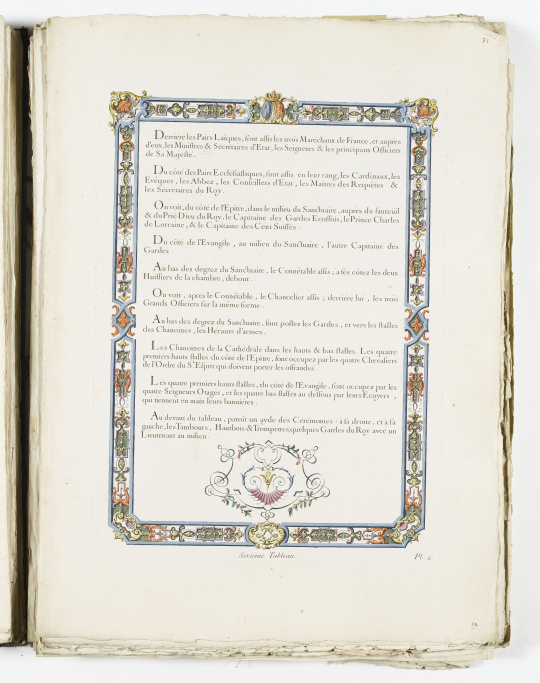 31
Derriére les Pairs Laïques, sont assis les trois Marechaux de France, et auprès
d'eux, les Ministres & Sécrétaires d'Etat, les Seigneurs & les principaux Officiers
de Sa Majesté.
Du côté des Pairs Ecclésiastiques, sont assis en leur rang, les Cardinaux, les
Evêques, les Abbez, les Conseillers d'Etat, les Maîtres des Requêtes &
les Sécrétaires du Roy.
On voit, du côté de l'Epitre, dans le milieu du Sanctuaire, auprès du fauteüil
& du Prié-Dieu du Roy, le Capitaine des Gardes Ecossois, le Prince Charles
de Lorraine, & le Capitaine des Cent Suisses.
Du côté de l'Evangile, au milieu du Sanctuaire, l'autre Capitaine des
Gardes.
Au bas des degrez du Sanctuaire, le Connétable assis, à ses côtez les deux
Huissiers de la chambre, debout.
On voit, après le Connétable, le Chancelier assis, derriére lui, les trois
Grands Officiers sur la même forme.
Au bas des degrez du Sanctuaire, sont postez les Gardes, et vers les stalles
des Chanoines, les Hérauts d'armes.
Les Chanoines de la Cathédrale dans les hauts & bas stalles. Les quatre
premiers hauts stalles du côté de l'Epitre, sont occupez par les quatre Chevaliers
de l'Ordre du St Esprit qui doivent porter les offrandes.
Les quatre premiers hauts stalles, du côté de l'Evangile, sont occupez par les
quatre Seigneurs Otages, et les quatre bas stalles au dessous par leurs Ecuyers,
qui tiennent en main leurs bannières.
Au devant du tableau, paroît un ayde des Cérémonies: à sa droite, et à sa
gauche, les Tambours, Hautbois & Trompettes, quelques Gardes du Roy avec un
Lieutenant au milieu.
Sixiéme Tableau
Pl. 2
19